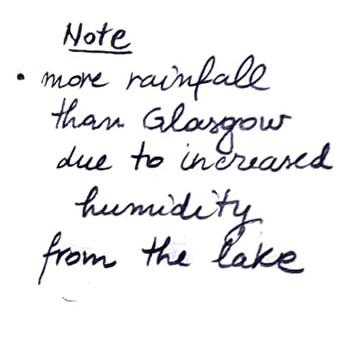 Note
• more rainfall
than Glasgow
due to increased
humidity
from the lake